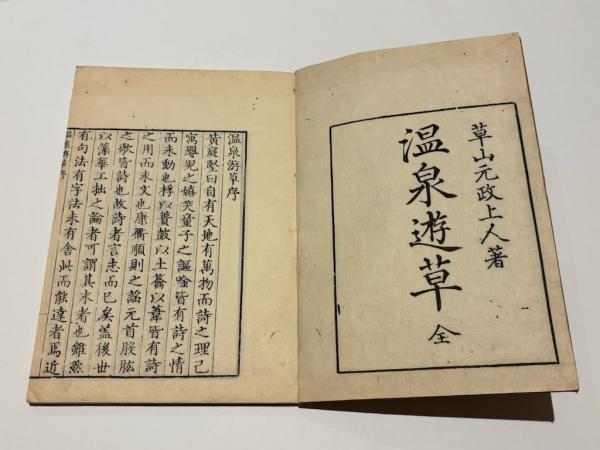 草山元政上人著
温泉遊草
全
温泉游草序
黄庭堅曰自有天地有萬物而詩之理已
寓嬰兒之嬉笑童子之謳唫皆有詩之情
而未動也桴以蕢皷以土籥以葦皆有詩
之用而未文也康衢順則之謠元首股肱
之歌皆詩也故詩者言志而已矣盖後世
以藻華工拙之論者可謂其末者也雖然
有句法有字法未有舍此而能達者焉近